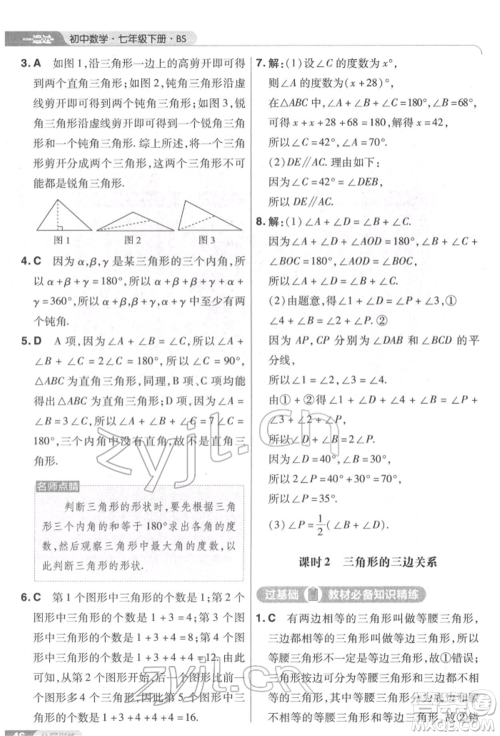 一遍过 初中数学·七年级下册·BS
3. A 如图1,沿三角形一边上的高剪开即可得
到两个直角三角形;如图2,钝角三角形沿虚
线剪开即可得到两个钝角三角形;如图3,钝
角三角形沿虚线剪开即可得到一个锐角三角
形和一个钝角三角形.综上所述,将一个三角
形剪开分成两个三角形,不可能都是锐角三
角形.
图1 图2 图3
4. C 因为α,β,γ是某三角形的三个内角,所
以α+β+γ=180°,所以α+β+α+γ+β+
γ=360°,所以α+β,α+γ,β+γ中至少有两
个钝角.
5. D A项,因为∠A+∠B=∠C,所以∠A+
∠B+∠C=2∠C=180°,所以∠C=90°,
△ABC为直角三角形,同理,B项,C项均能
得到△ABC为直角三角形;D项,因为∠A=
∠B=3∠C,所以∠A+∠B+∠C=7∠C=
180°,三个内角中没有直角,故不是直角三
角形.
名师点睛
判断三角形的形状时,要根据三角
形三个内角的和等于180°求出角的度
数,然后观察三角形中最大内角的形状
即可.
6. C 第1个图形中三角形的个数是1,第2个
图形中三角形的个数是1+3=4,第3个图形
中三角形的个数是1+3+4=8,第4个图形
中三角形的个数是1+3+4+4=12,则第5
个图形中三角形的个数是1+3+4+4+4=16.
46
7. 解:(1)设∠A的度数为x°,
则∠C的度数为(x+28)°,
在△ABC中,∠A+∠B+∠C=180°,∠B=68°,
可得x+x+28+68=180,
所以x=42,
所以∠A=42°,∠C=70°.
(2)DE∥AC.理由如下:
因为∠C=42°=∠DEB,
所以DE∥AC.
8. 解:(1)因为∠A+∠D+∠AOD=∠C+
∠B+∠BOC=180°,∠AOD=∠BOC,
所以∠A+∠D=∠B+∠C.
(2)由题意,得∠1+∠D=∠3+∠P,①
∠4+∠B=∠2+∠P,②
因为AP,CP分别是∠DAB和∠BCD的平
分线,
所以∠1=∠2,∠3=∠4.
由①+②,得∠1+∠D+∠4+∠B=∠3+
∠P+∠2+∠P,
所以2∠P=∠D+∠B=40°+30°=70°,
所以∠P=35°.
(3)∠P=1/2(∠B+∠D).
课时2 三角形的三边关系
过基础 教材必备知识精练
1. C 有两边相等的三角形叫做等腰三角形,
三边都相等的三角形叫做等边三角形,等边
三角形是特殊的等腰三角形,故①错误;三角
形按边分可分为三边都不相等的三角形和等